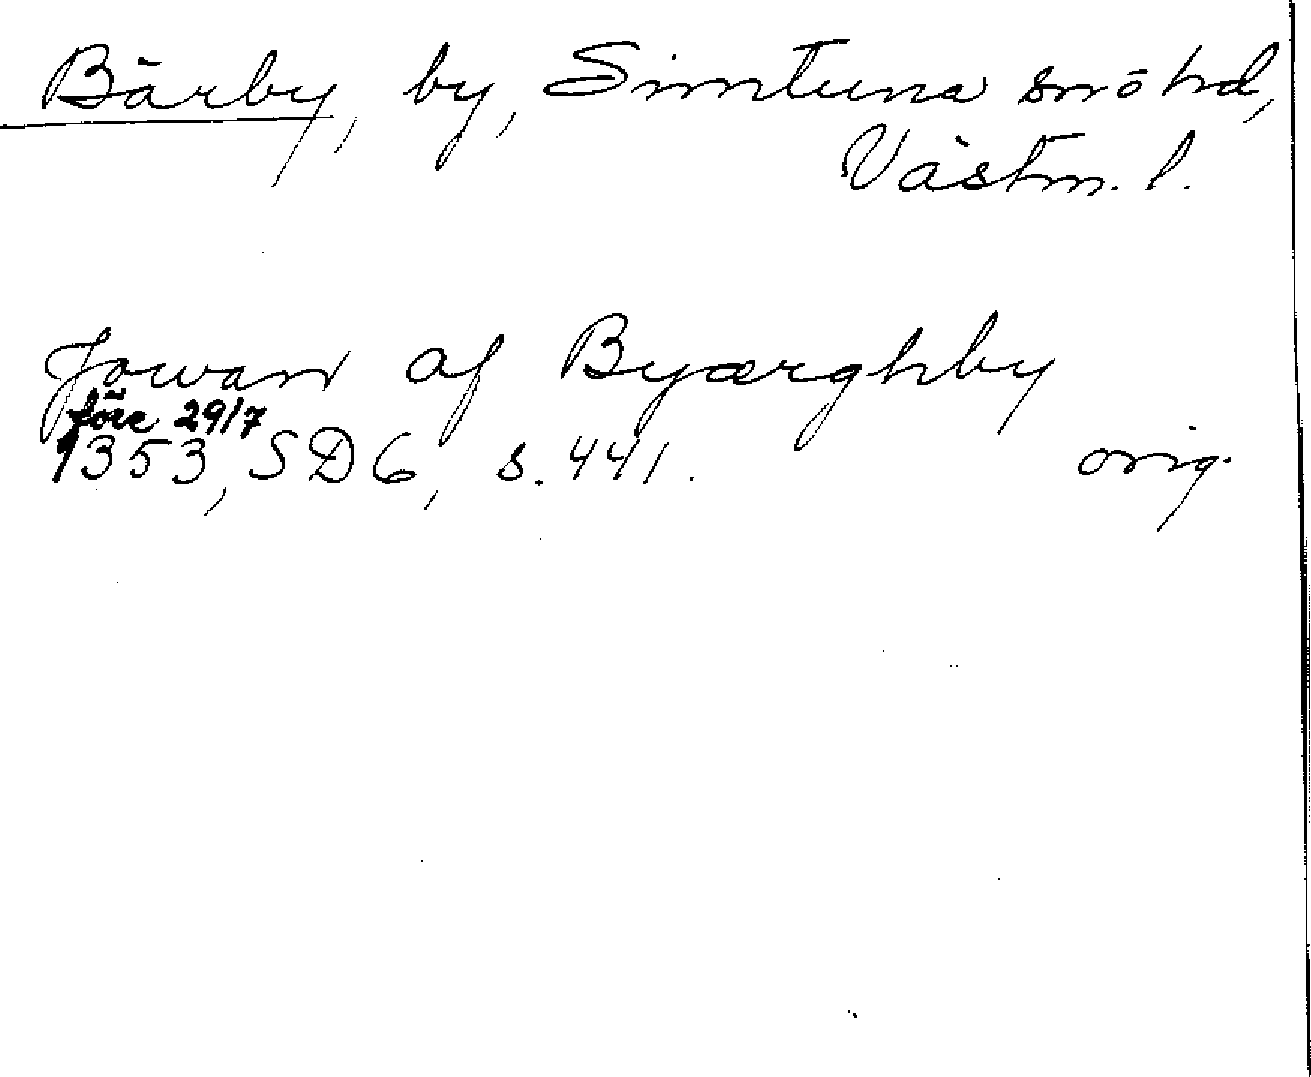 Bärby, by, Simtuna sn o hd,
Västm. l.
Jowan af Byærghby
före 29/7
1353, SD 6, s. 441. orig.